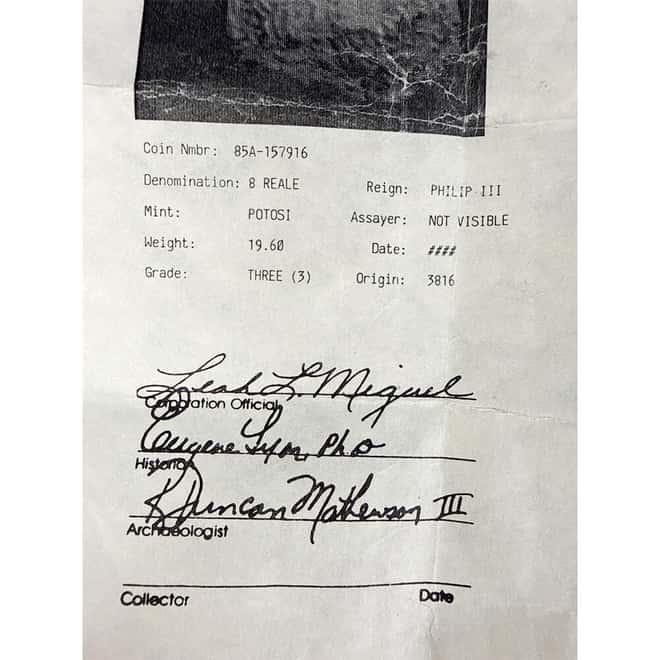 Coin Nmbr: 85A-157916
Denomination: 8 REALE Reign: PHILIP III
Mint: POTOSI Assayer: NOT VISIBLE
Weight: 19.60 Date: ####
Grade: THREE (3) Origin: 3816
Leah L. Miguel
Corporation Official
Eugene Lyon, Ph.D
Historian
R Duncan Mathewson III
Archaeologist
Collector Date